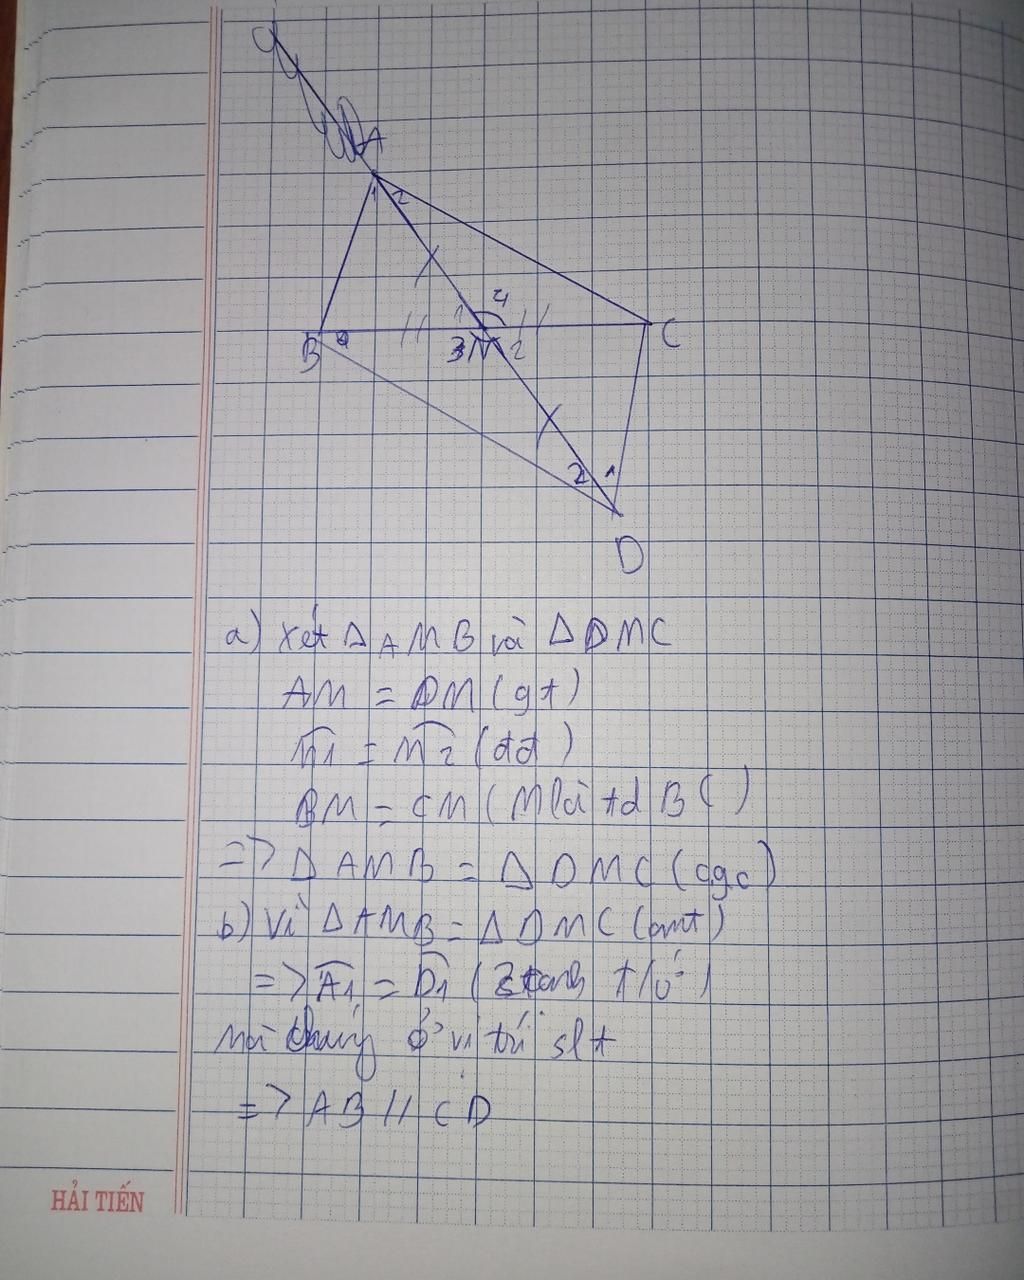 A
1 2
1 4
B 3 M 2 C
2 1
D
a) Xét Δ AMB và Δ DMC
AM = DM (gt)
M1 = M2 (đđ)
BM = CM (M là tđ BC)
=> Δ AMB = Δ DMC (cgc)
b) Vì Δ AMB = Δ DMC (cmt)
=> A1 = D1 (2 t/ứ)
Mà chúng ở vị trí slt
=> AB // CD
HẢI TIẾN